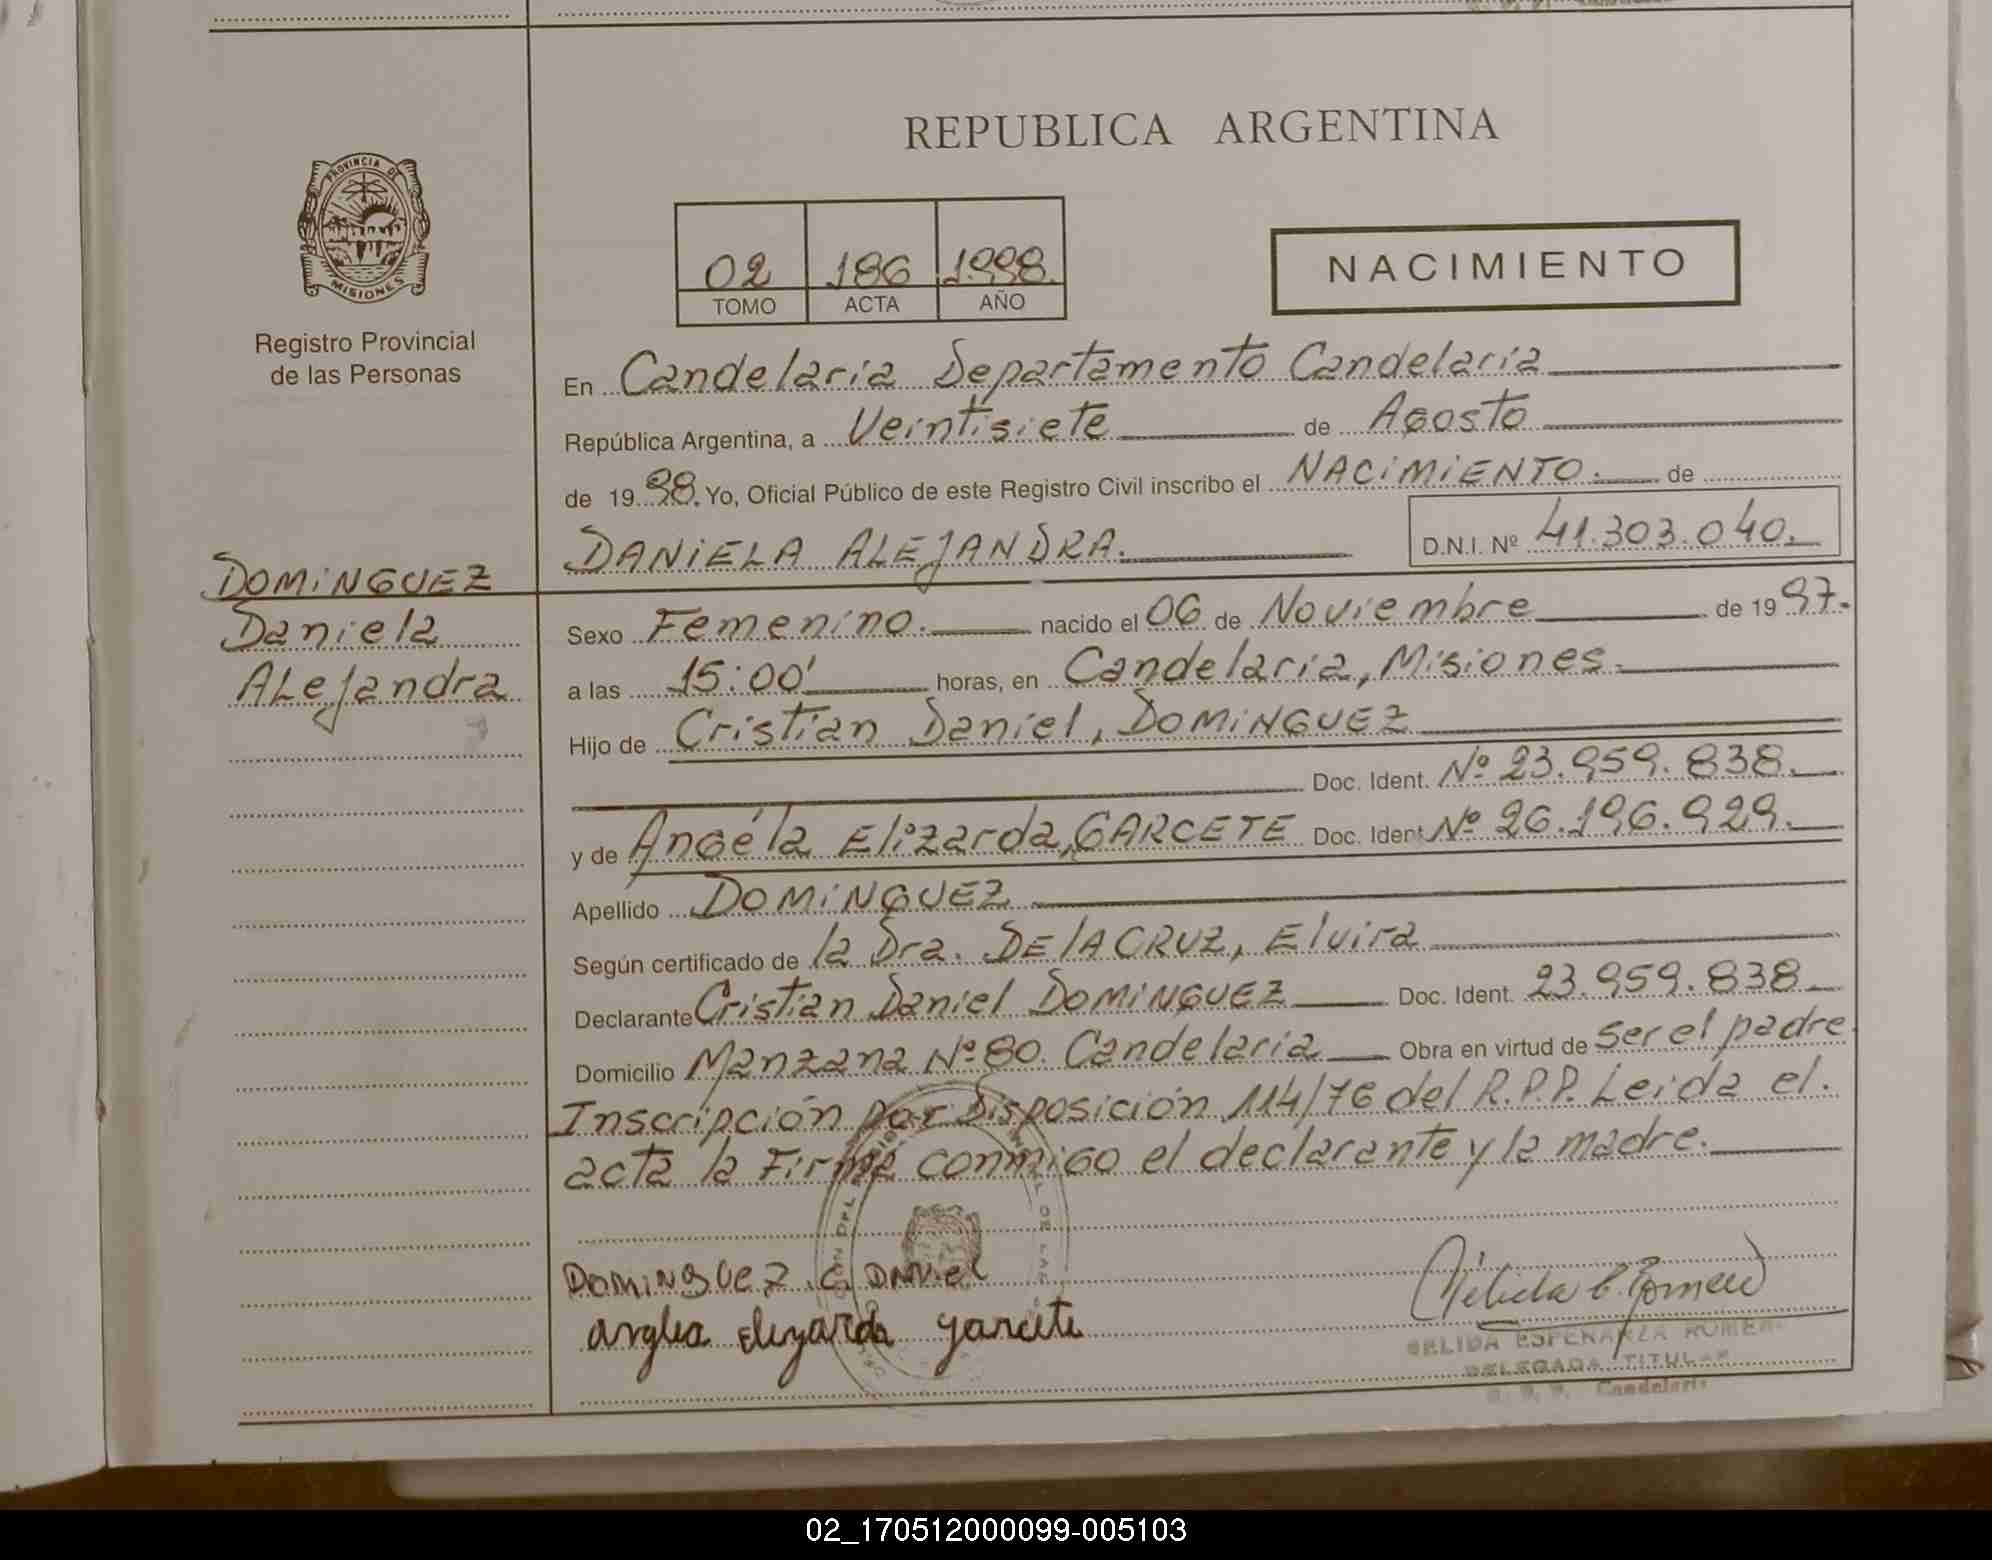 REPUBLICA ARGENTINA
PROVINCIA DE
MISIONES
Registro Provincial
de las Personas
02 186 1998.
TOMO ACTA AÑO
NACIMIENTO
En Candelaria Departamento Candelaria
República Argentina, a Veintisiete de Agosto
de 1998. Yo, Oficial Público de este Registro Civil inscribo el NACIMIENTO. de
DANIELA ALEJANDRA. D.N.I. Nº 41.303.040.
DOMINGUEZ
Daniela
ALejandra
Sexo Femenino. nacido el 06 de Noviembre de 1997.
a las 15:00' horas, en Candelaria, Misiones.
Hijo de Cristian Daniel, DOMINGUEZ
Doc. Ident. Nº 23.959.838.
y de Angéla Elizarda, GARCETE Doc. Ident. Nº 26.196.929.
Apellido DOMINGUEZ
Según certificado de la Dra. DE lA CRUZ, Elvira
Declarante Cristian Daniel DOMINGUEZ Doc. Ident. 23.959.838
Domicilio Manzana Nº 80. Candelaria Obra en virtud de ser el padre.
Inscripción por Disposición 114/76 del R.P.P. Leida el.
acta la Firma conmigo el declarante y la madre.
DOMINGUEZ C. DANiel
angela elizarda garcete
NELIDA ESPERANZA ROMERO
DELEGADA TITULAR
R. P. P. Candelaria
02_170512000099-005103